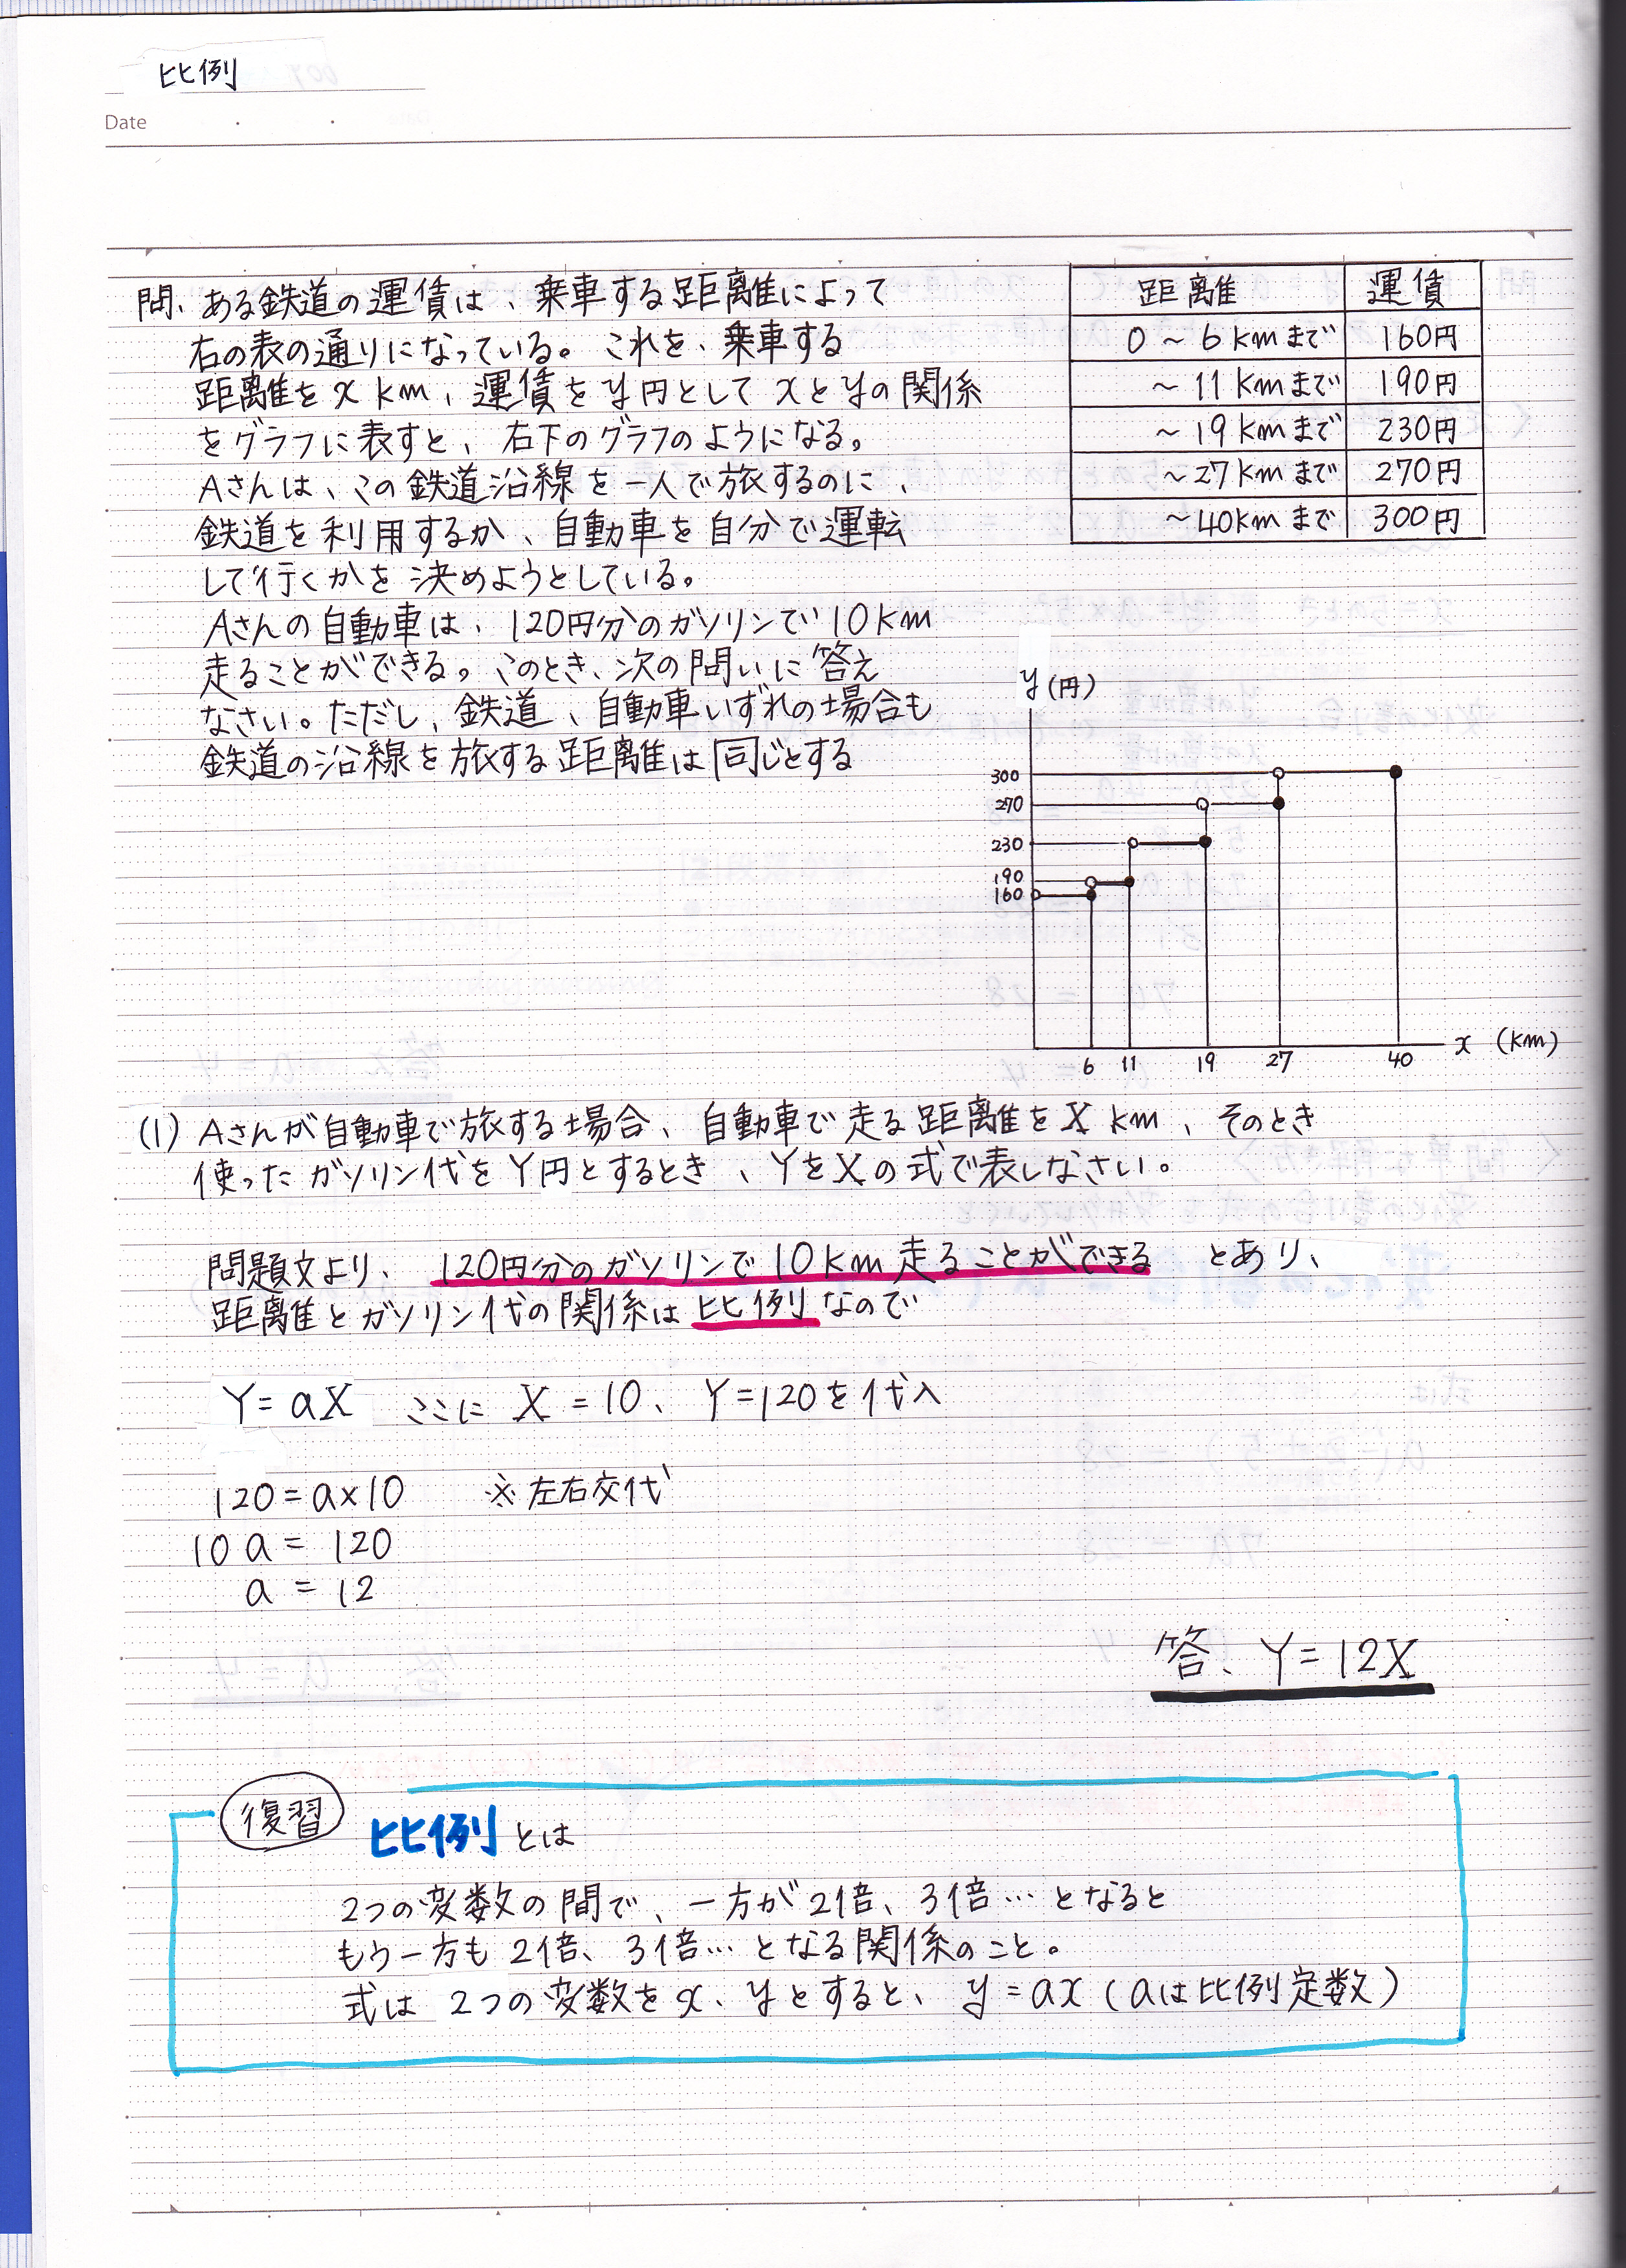 比例
Date
問、ある鉄道の運賃は、乗車する距離によって
右の表の通りになっている。これを、乗車する
距離をx km、運賃をy円としてxとyの関係
をグラフに表すと、右下のグラフのようになる。
Aさんは、この鉄道沿線を一人で旅するのに、
鉄道を利用するか、自動車を自分で運転
して行くかを決めようとしている。
Aさんの自動車は、120円分のガソリンで10km
走ることができる。このとき、次の問いに答え
なさい。ただし、鉄道、自動車いずれの場合も
鉄道の沿線を旅する距離は同じとする
距離 運賃
0～6kmまで 160円
～11kmまで 190円
～19kmまで 230円
～27kmまで 270円
～40kmまで 300円
y(円)
300
270
230
190
160
6 11 19 27 40 x (km)
(1) Aさんが自動車で旅する場合、自動車で走る距離をX km、そのとき
使ったガソリン代をY円とするとき、YをXの式で表しなさい。
問題文より、120円分のガソリンで10km走ることができる とあり、
距離とガソリン代の関係は比例なので
Y=aX ここに X=10、Y=120を代入
120=a×10 ※左右交代
10a=120
a=12
答、Y=12X
復習 比例とは
2つの変数の間で、一方が2倍、3倍…となると
もう一方も2倍、3倍…となる関係のこと。
式は2つの変数をx、yとすると、y=ax(aは比例定数)